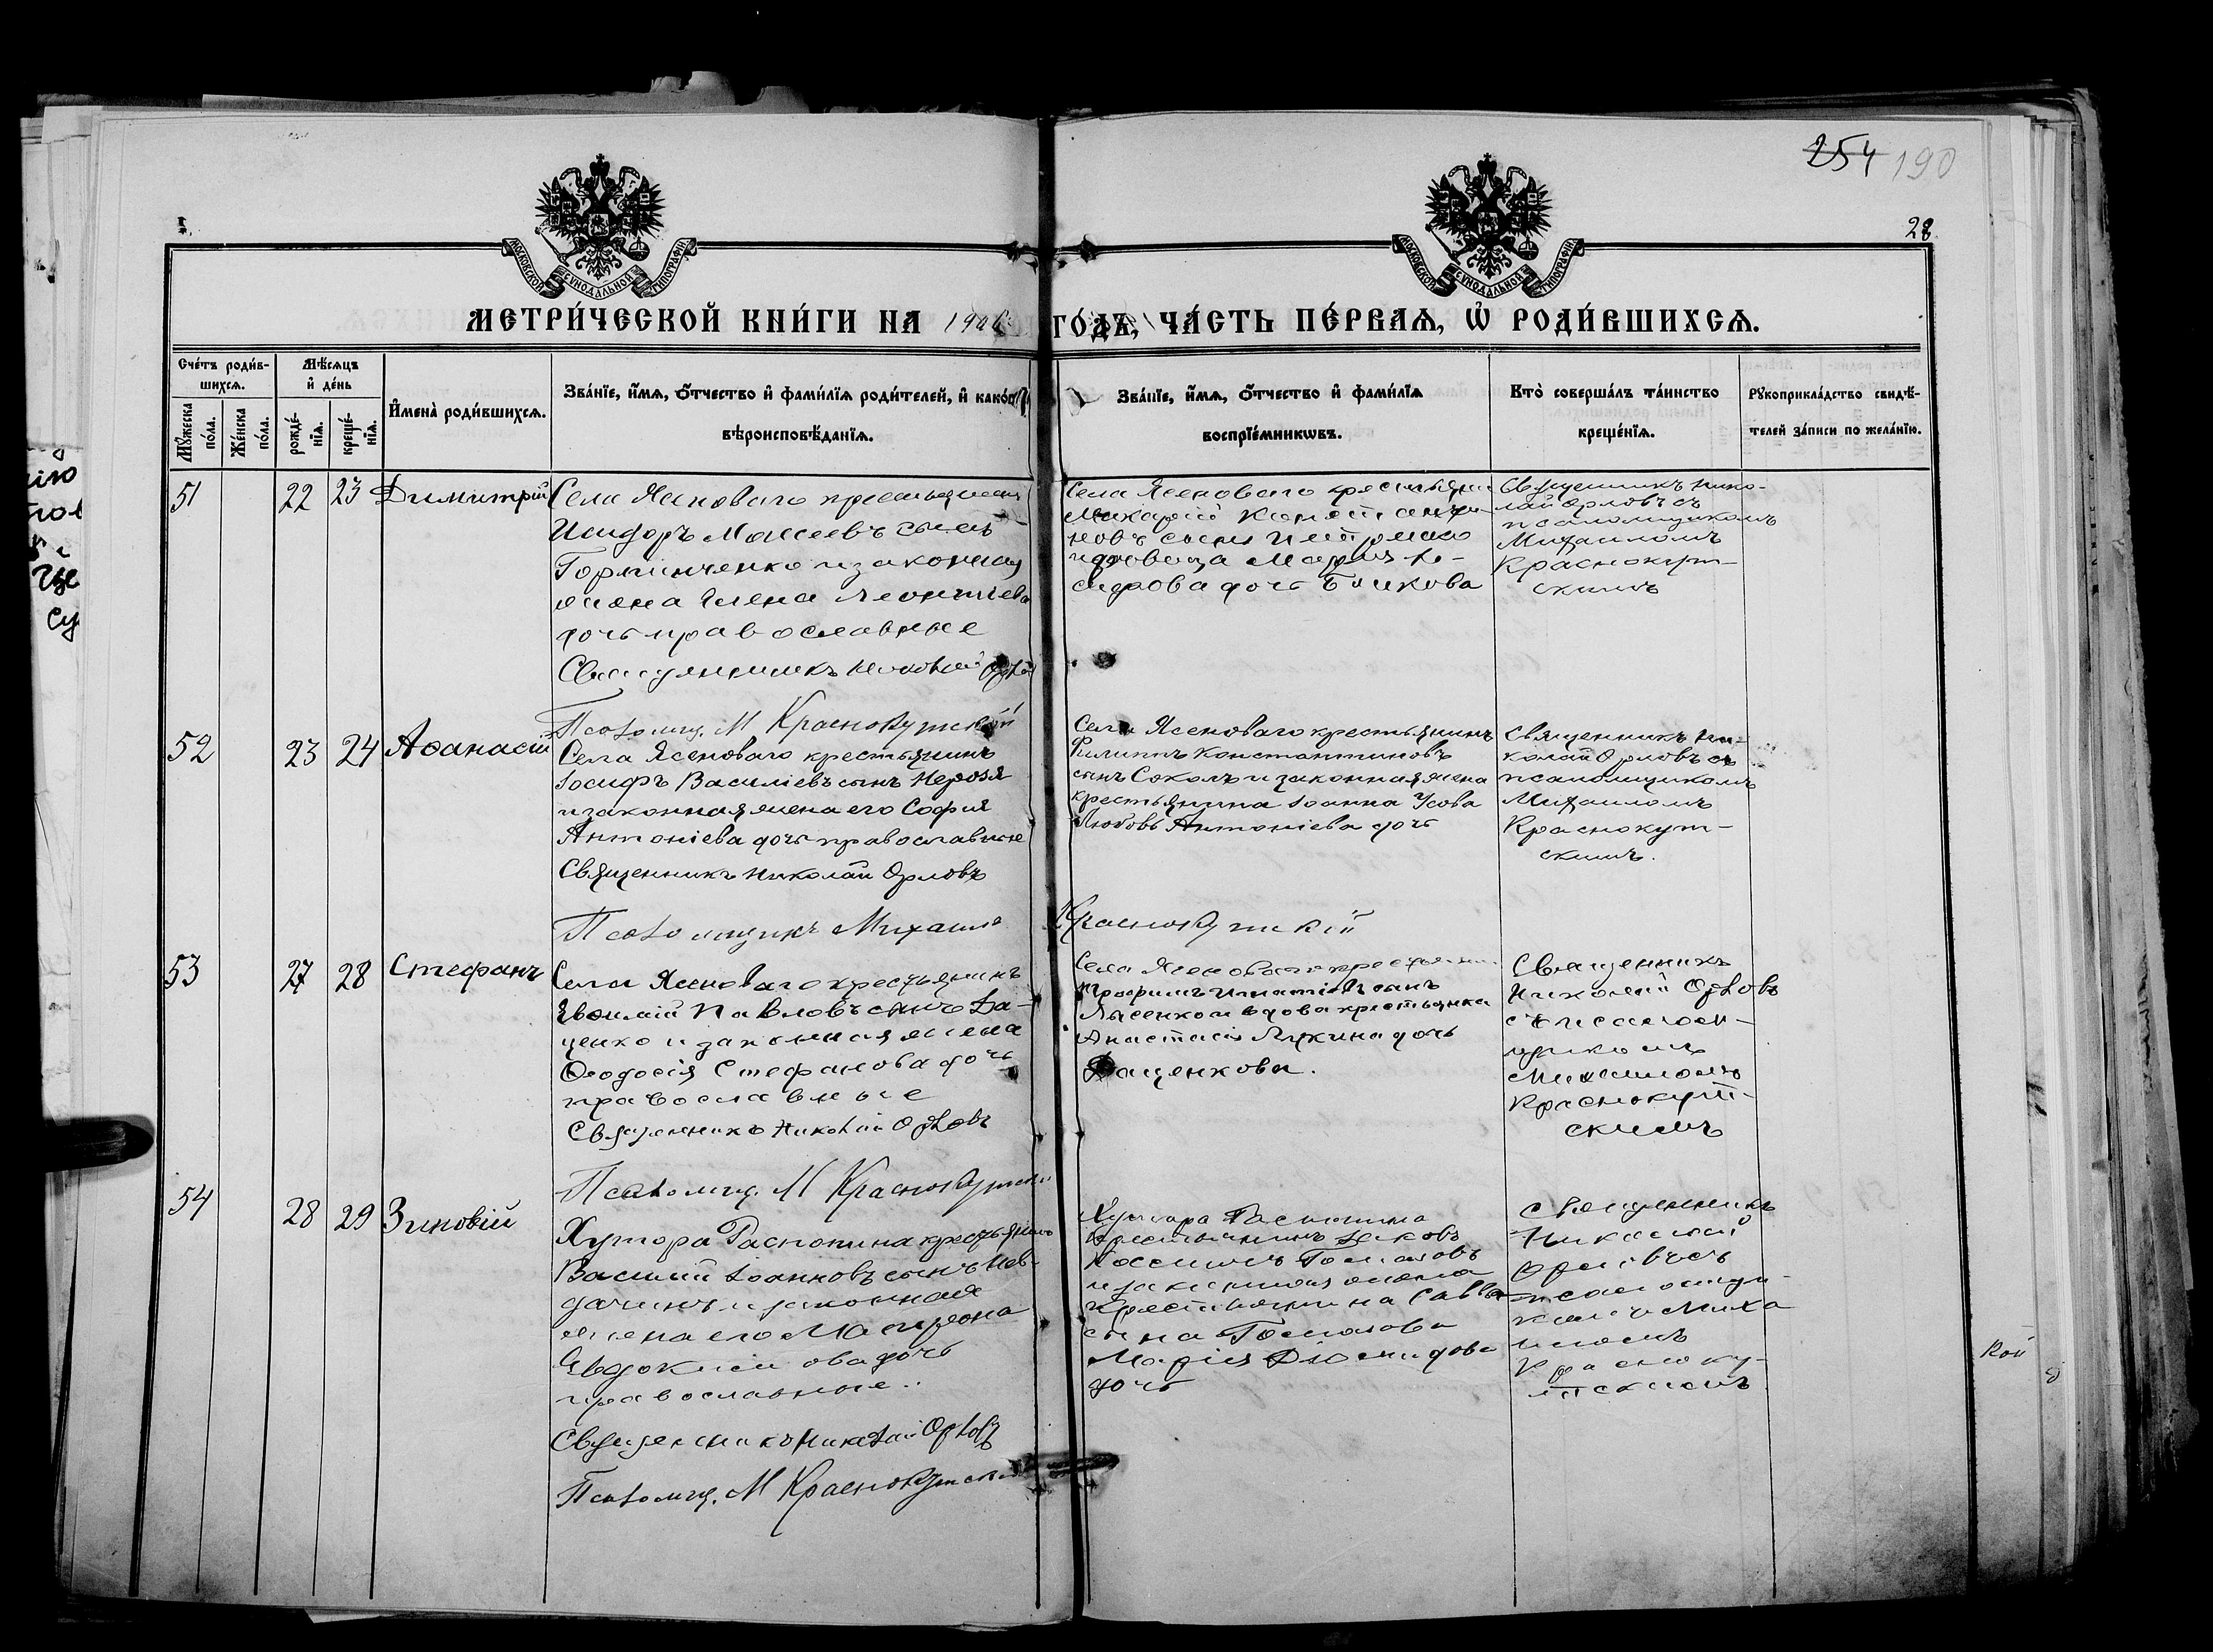 254 190
28
I.
МОСКОВСКОЙ СѴНОДАЛЬНОЙ ТИПОГРАФІИ
МОСКОВСКОЙ СѴНОДАЛЬНОЙ ТИПОГРАФІИ
МЕТРИ́ЧЕСКОЙ КНИ́ГИ НА 190 ГО́ДЪ, ЧА́СТЬ ПЕ́РВАѦ, Ѽ РОДИ́ВШИХСѦ.
Сче́тъ роди́в-
шихсѧ.
Мꙋ́жеска
по́ла.
Же́нска
по́ла.
Мѣ́сѧцъ
и҆ де́нь
рожде́-
нїѧ.
креще́-
нїѧ.
И҆мена̀ роди́вшихсѧ.
Зва́нїе, и҆́мѧ, ѻ҆́тчество и҆ фами́лїѧ роди́телей, и҆ како́гѡ
вѣроисповѣ́данїѧ.
Зва́нїе, и҆́мѧ, ѻ҆́тчество и҆ фами́лїѧ
воспрїе́мникѡвъ.
Кто̀ соверша́лъ та́инство
креще́нїѧ.
Рꙋкоприкла́дство свидѣ́-
телей за́писи по жела́нїю.
51
22
23
Димитрій
Села Ясеноваго крестьянинъ
Исидоръ Моисеевъ сынъ
и законная
жена Елена Леонтіева
дочь православные
Священникъ Николай Орловъ
Псаломщ. М Краснокутскій
Села Ясеноваго крестьянинъ
Макарій Константи-
новъ сынъ
и вдовица Марія И-
сидрова дочь Бойкова
Священникъ Нико-
лай Орловъ съ
псаломщикомъ
Михаиломъ
Краснокут-
скимъ
52
23
24
Аѳанасій
Села Ясеноваго крестьянинъ
Іосифъ Василіевъ сынъ Нерозя
и законная жена его Софія
Антоніева дочь православные
Священникъ Николай Орловъ
Псаломщикъ Михаилъ Краснокутскій
Села Ясеноваго крестьянинъ
Филиппъ Константиновъ
сынъ Соколъ и законная жена
крестьянина Іоанна Усова
Любовь Антоніева дочь
Священникъ Ни-
колай Орловъ съ
псаломщикомъ
Михаиломъ
Краснокут-
скимъ.
53
27
28
Стефанъ
Села Ясеноваго крестьянинъ
Евѳимій Павловъ сынъ Да-
ценко и законная жена
Ѳеодосія Стефанова дочь
православные
Священникъ Николай Орловъ
Псаломщ. М Краснокутскій
Села Ясеноваго крестьянинъ
Трофимъ Игнатіевъ сынъ
Лысенко и вдова крестьянка
Анастасія Лукина дочь
Даценкова.
Священникъ
Николай Орловъ
съ псалом-
щикомъ
Михаиломъ
Краснокут-
скимъ
54
28
29
Зиновій
Хутора Распопина крестьянинъ
Василій Іоанновъ сынъ
и законная
жена его Матрона
Евдокимова дочь
православные.
Священникъ Николай Орловъ
Псаломщ. М Краснокутскій
Хутора Распопина
крестьянинъ Іаковъ
и законная жена
крестьянина Саввы
Марія Діомидова
дочь
Священникъ
Николай
Орловъ съ
псаломщи-
комъ Миха
иломъ
Красноку-
тскимъ